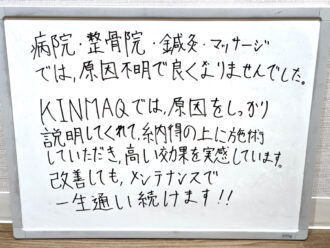 病院・整骨院・鍼灸・マッサージ
では,原因不明で良くなりませんでした。
KINMAQでは,原因をしっかり
説明してくれて,納得の上に施術
していただき,高い効果を実感しています。
改善しても,メンテナンスで
一生通い続けます!!